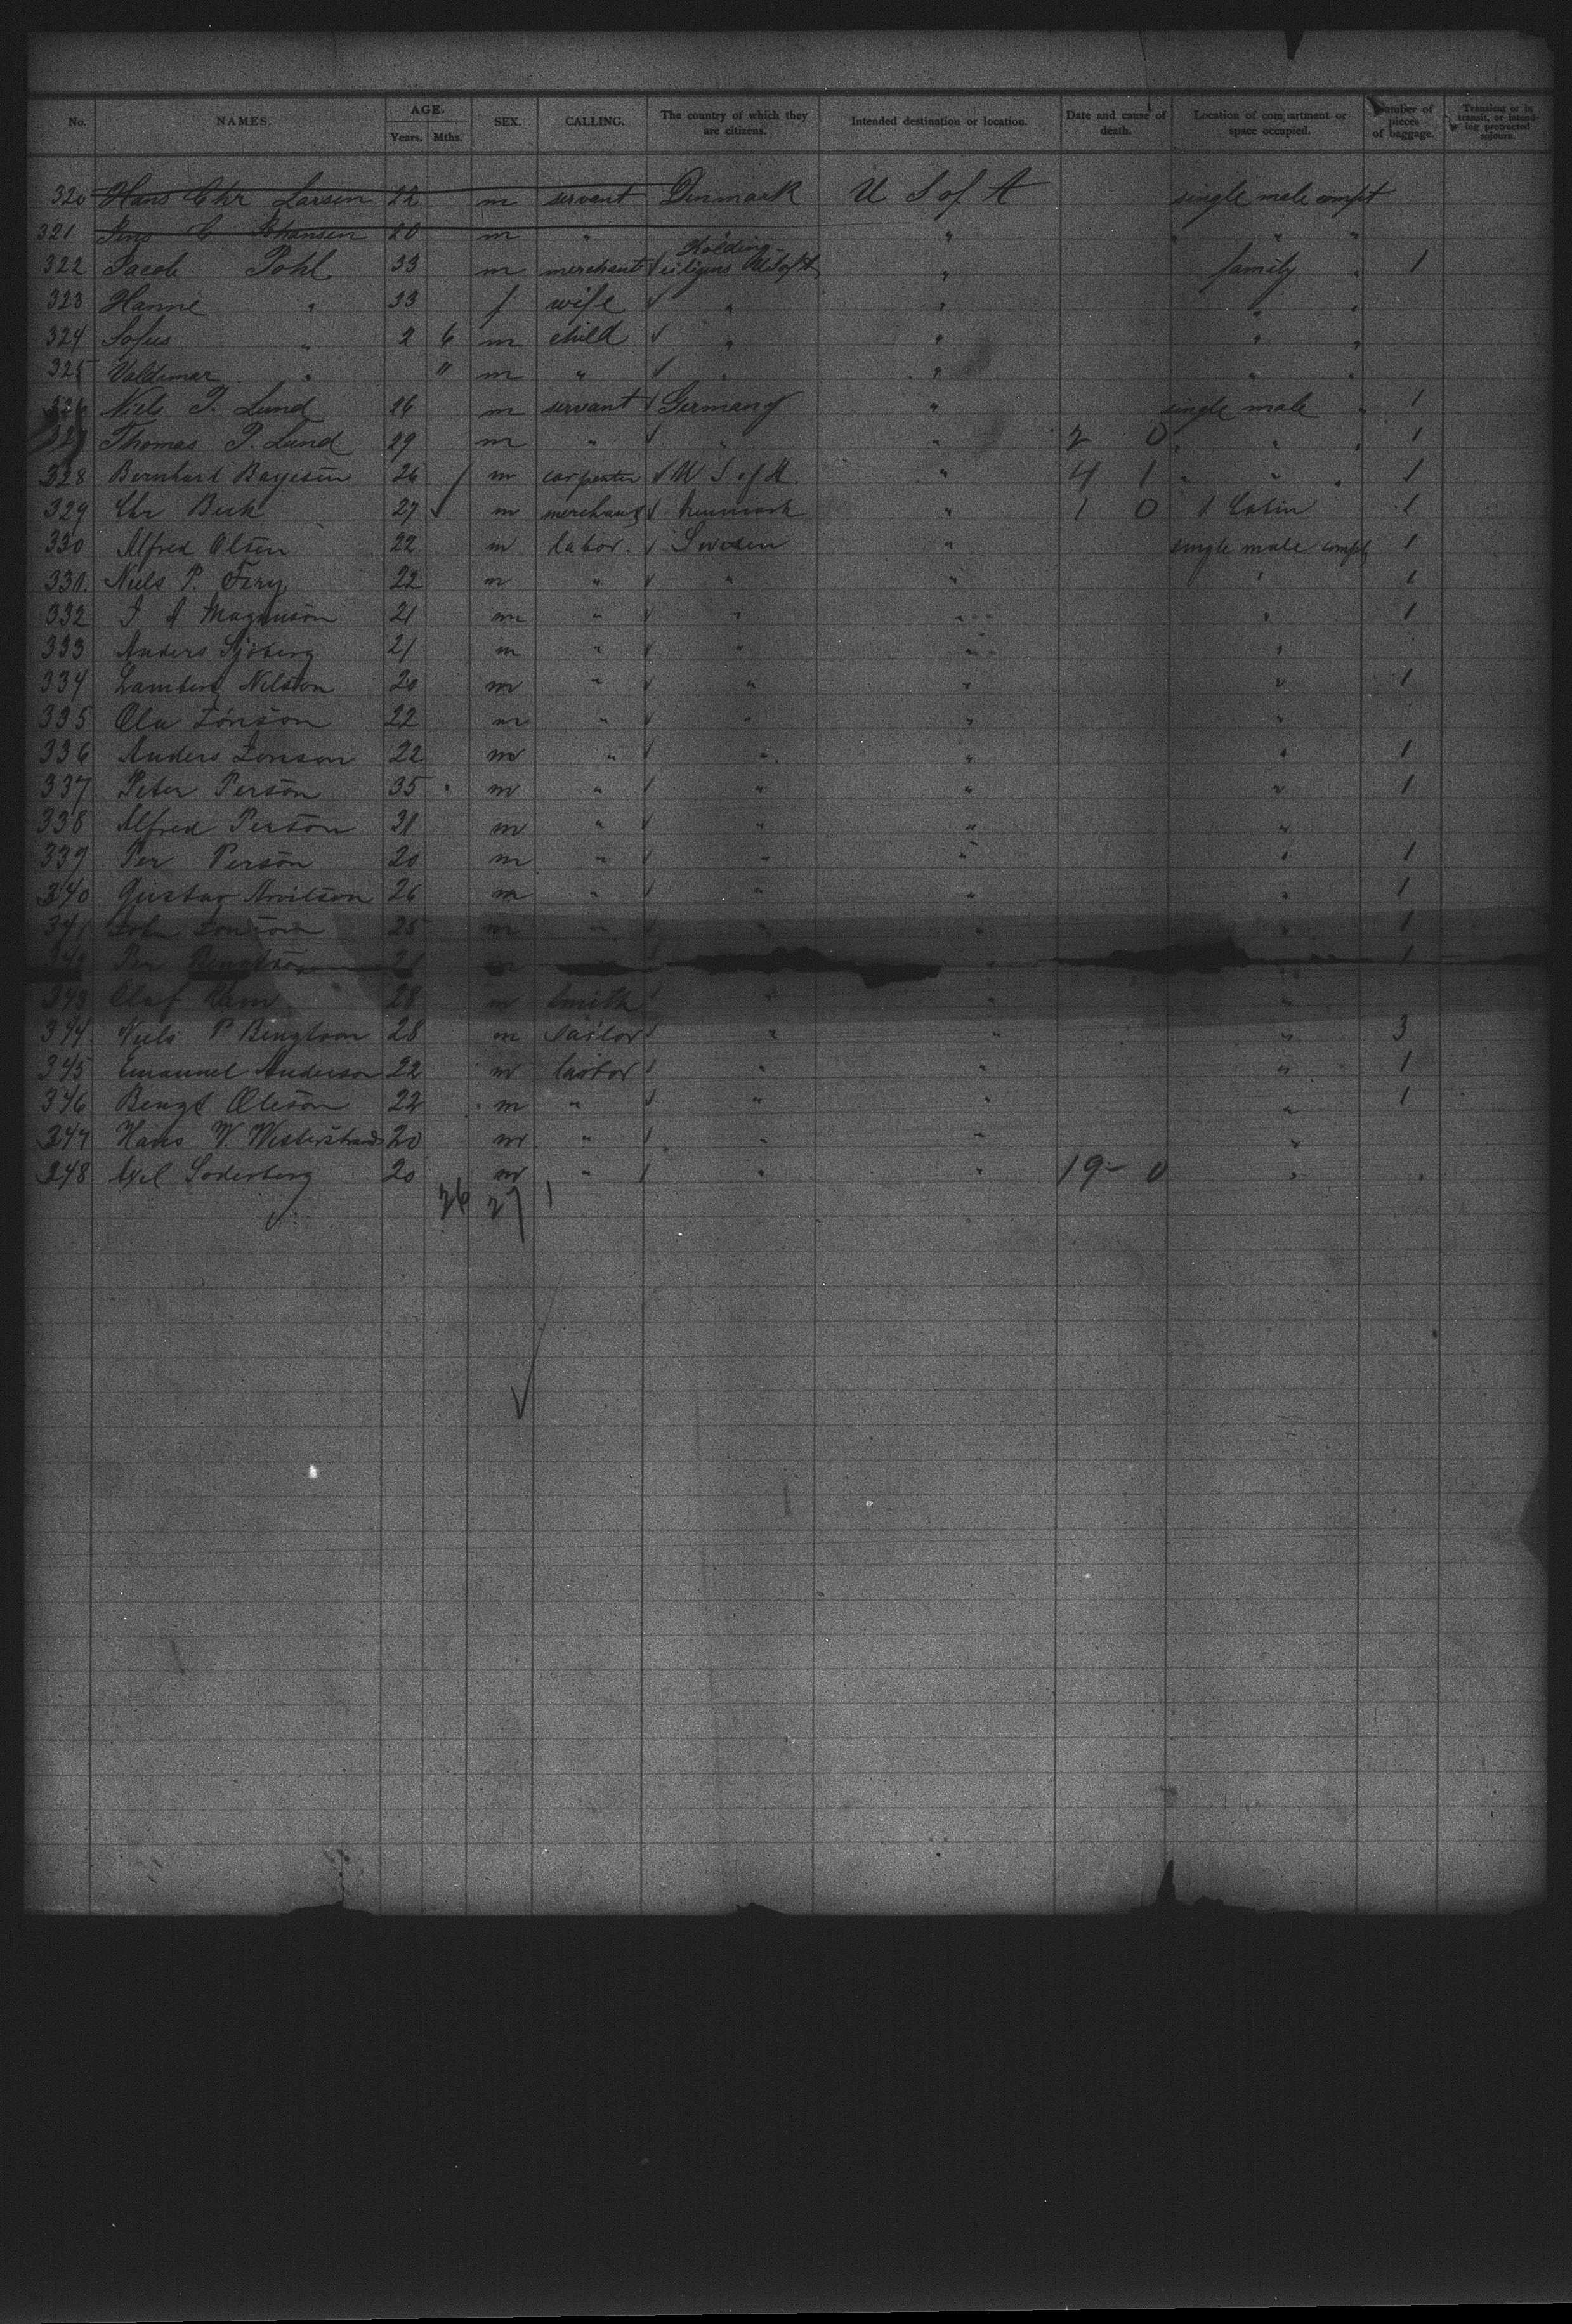 No. NAMES. AGE. Years. Mths. SEX. CALLING. The country of which they are citizens. Intended destination or location. Date and cause of death. Location of compartment or space occupied. Number of pieces of baggage. Transient or in transit, or intending protracted sojourn.
320 Hans Chr Larsen 22 m servant Denmark U S of A single male compt
321 Jens C 20 m " " " " "
322 Jacob Pohl 33 m merchant Kolding citizens U S of A " family " 1
323 Hanne " 33 f wife " " " "
324 Sofus " 2 6 m child " " " "
325 Valdemar " " m " " " " "
326 Niels P. Lund 26 m servant Germany " single male " 1
327 Thomas P. Lund 29 m " " " 2 0 " " " 1
328 Bernhart Boyesen 26 m carpenter U S of A. " 4 1 " " " 1
329 Chr Beck 27 m merchant Denmark " 1 0 1 Cabin 1
330 Alfred Olsen 22 m labor. Sweden " single male compt 1
331. Niels P. 22 m " " " " 1
332 Magnuson 21 m " " " " 1
333 Anders Sjöberg 21 m " " " "
334 Lambert Nilsson 20 m " " " " 1
335 Ola Jönson 22 m " " " "
336 Anders Jonson 22 m " " " " 1
337 Peter Person 35 m " " " " 1
338 Alfred Person 21 m " " " "
339 Per Person 20 m " " " " 1
340 Gustav Arvilson 26 m " " " " 1
341 John Jonson 25 m " " " " 1
342 Per Bengtson 21 m 1
343 Olaf Ham 28 m Smith " " "
344 Niels P Bengtson 28 m Sailor " " " 3
345 Emanuel Anderson 22 m labor " " " 1
346 Bengt Oleson 22 m " " " " 1
347 Hans W. Westerstrand 20 m " " " "
348 Axel Soderberg 20 m " " " 19 - 0 "
26 27 1